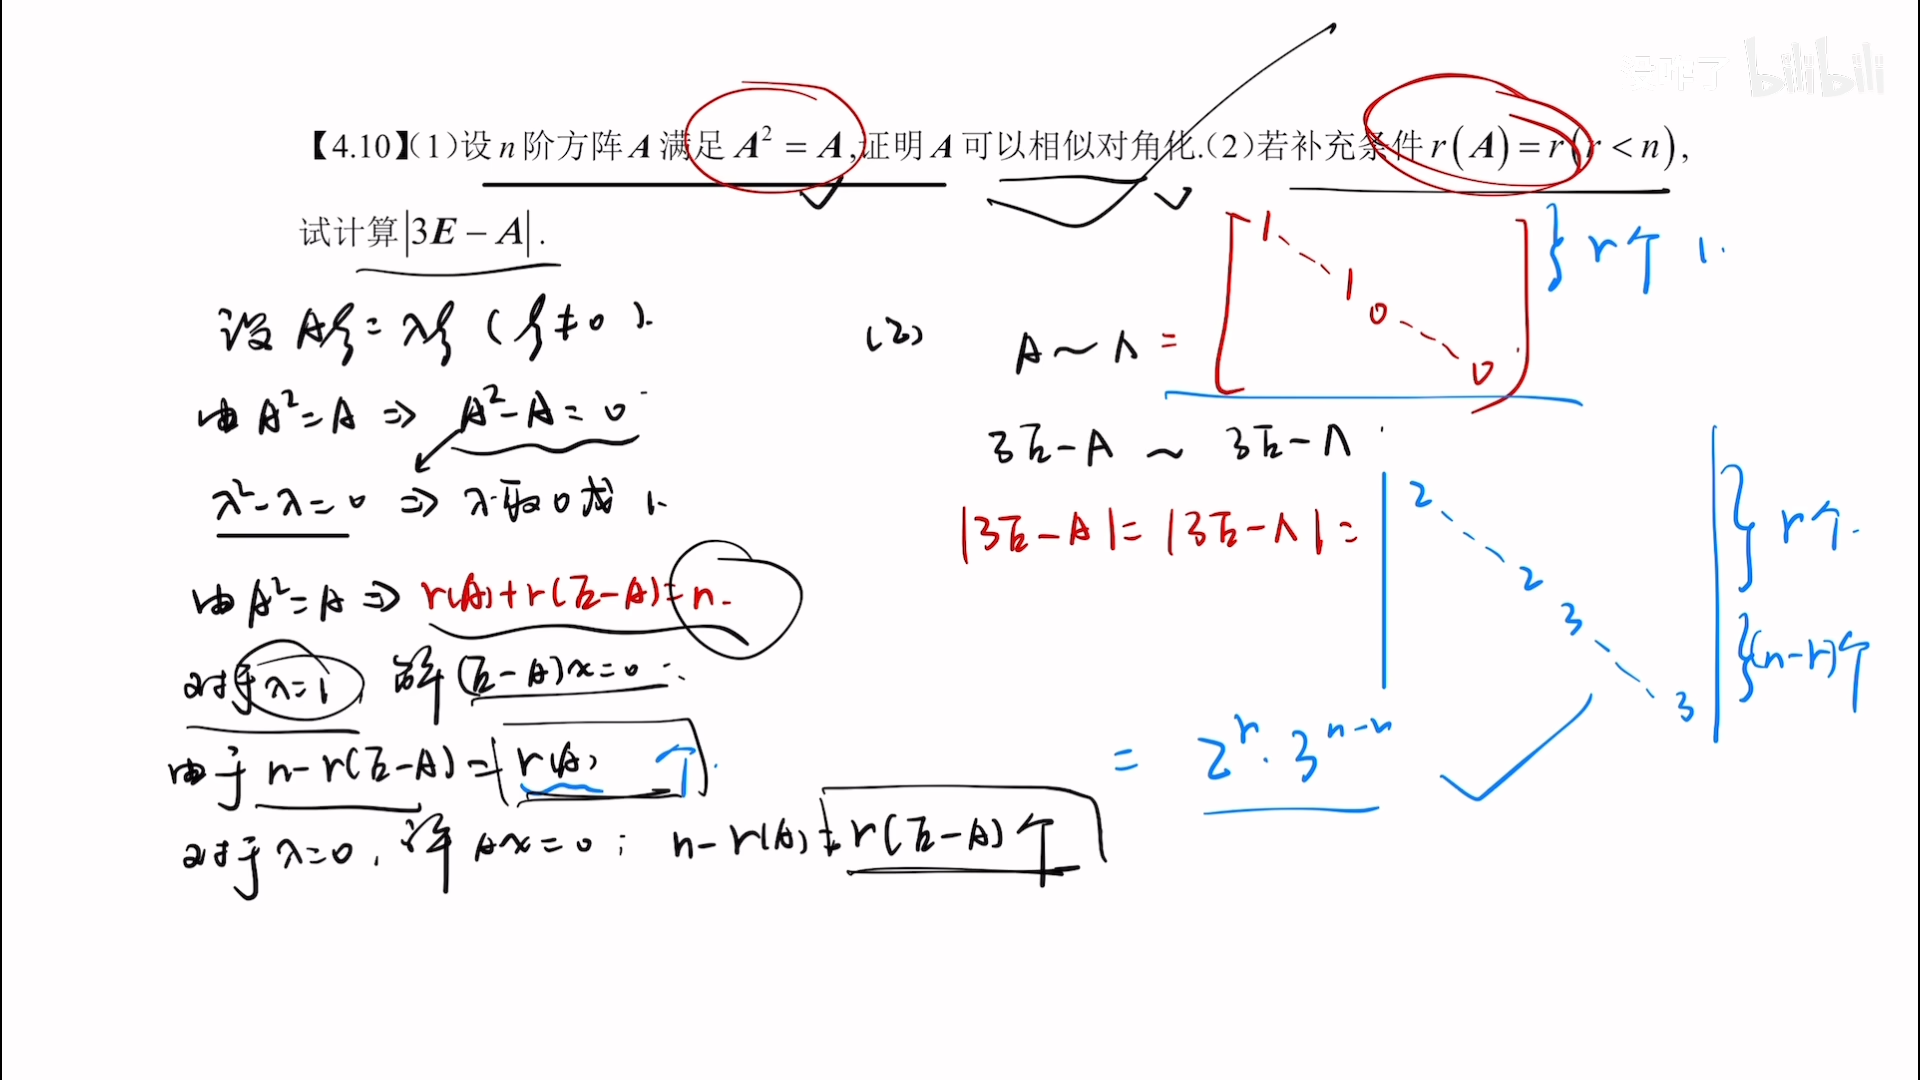 【4.10】(1)设 n 阶方阵 A 满足 A² = A,证明 A 可以相似对角化.(2)若补充条件 r(A) = r(r < n),
试计算|3E − A|.
设 Aξ = λξ (ξ ≠ 0).
由 A² = A ⇒ A² − A = 0
λ² − λ = 0 ⇒ λ取0或1.
由 A² = A ⇒ r(A) + r(E−A) = n.
对于 λ=1 解 (E−A)x = 0 :
由于 n − r(E−A) = r(A) 个.
对于 λ=0, 解 Ax = 0 ; n − r(A) = r(E−A) 个
(2) A ~ Λ =
1
1
0
0
r个 1.
3E−A ~ 3E−Λ
|3E−A| = |3E−Λ| =
2
2
3
3
r个.
(n−r)个
= 2^r · 3^{n−r}
bilibili